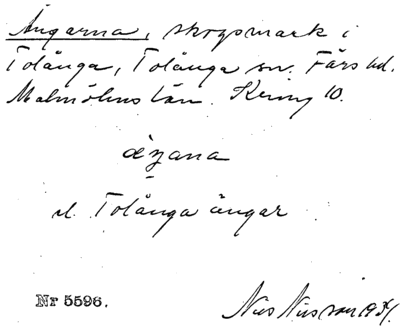 Ängarna, skogsmark i
Tolånga, Tolånga sn. Färs hd.
Malmöhus län. Kring 10.
äŋana
d. Tolånga ängar
Nr 5596.
Nils Nilsson 1934.